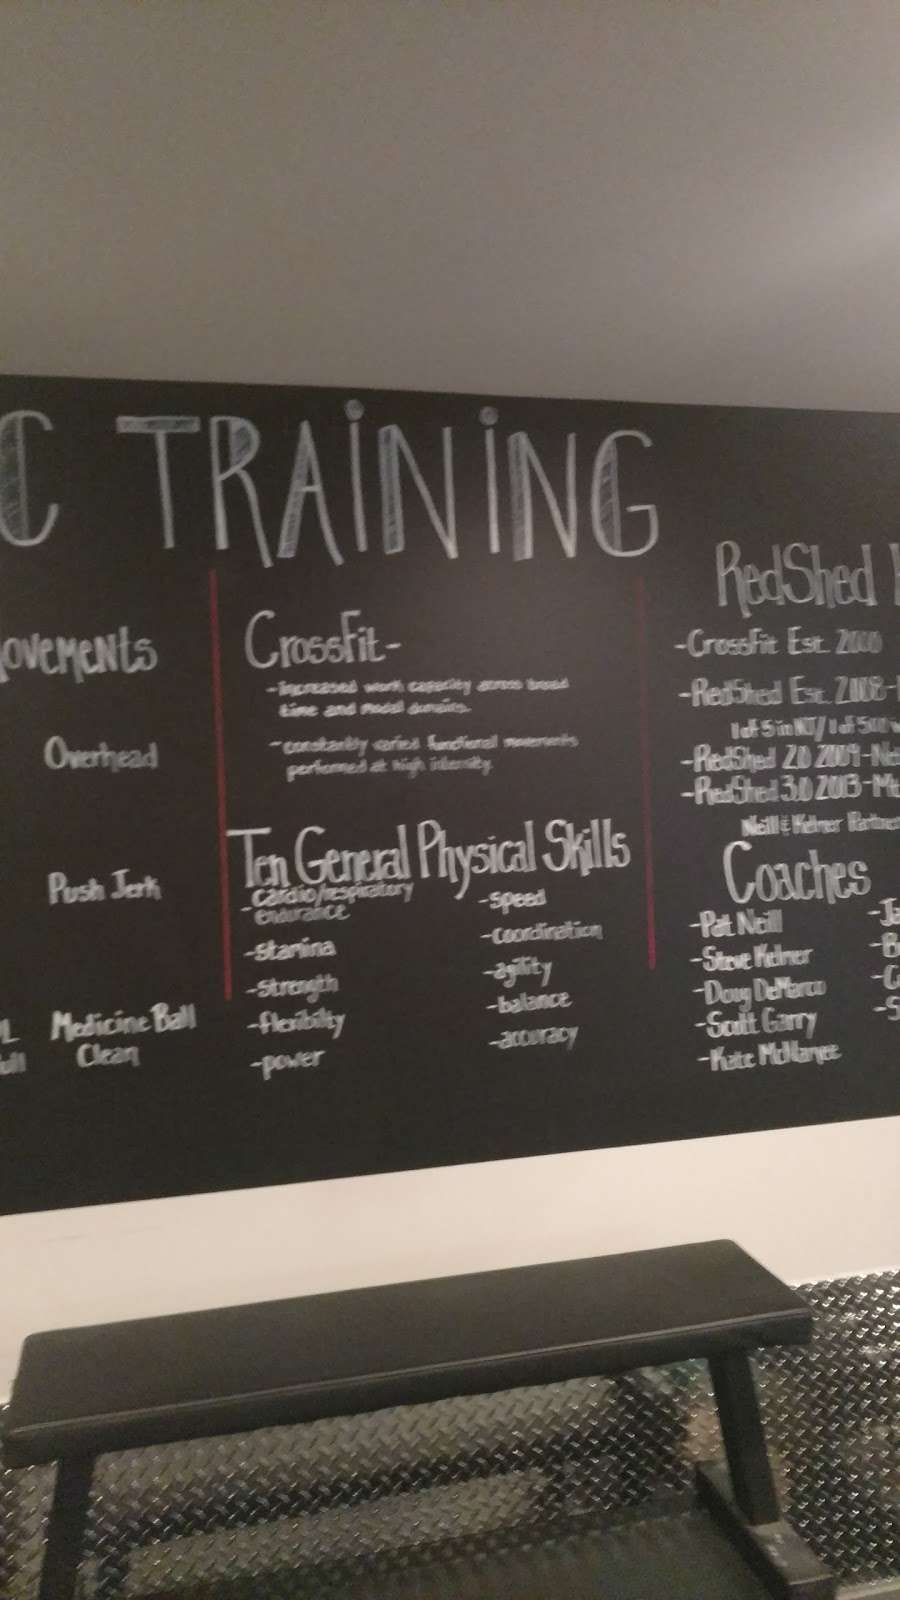 C TRAINING
MOVEMENTS
Overhead
Push Jerk
Medicine Ball
Clean
CrossFit-
-increased work capacity across broad
time and modal domains.
-constantly varied functional movements
performed at high intensity.
Ten General Physical Skills
-cardio/respiratory
endurance
-stamina
-strength
-flexibilty
-power
-speed
-coordination
-agility
-balance
-accuracy
RedShed
-CrossFit Est. 2000
-RedShed Est. 2008-
1 of 5 in NJ/1 of 500
-RedShed 2.0 2009-
-RedShed 3.0 2013-Mt
Neill & Kelner Partner
Coaches
-Pat Neill
-Steve Kelner
-Doug DeMarco
-Scott Garry
-Kate